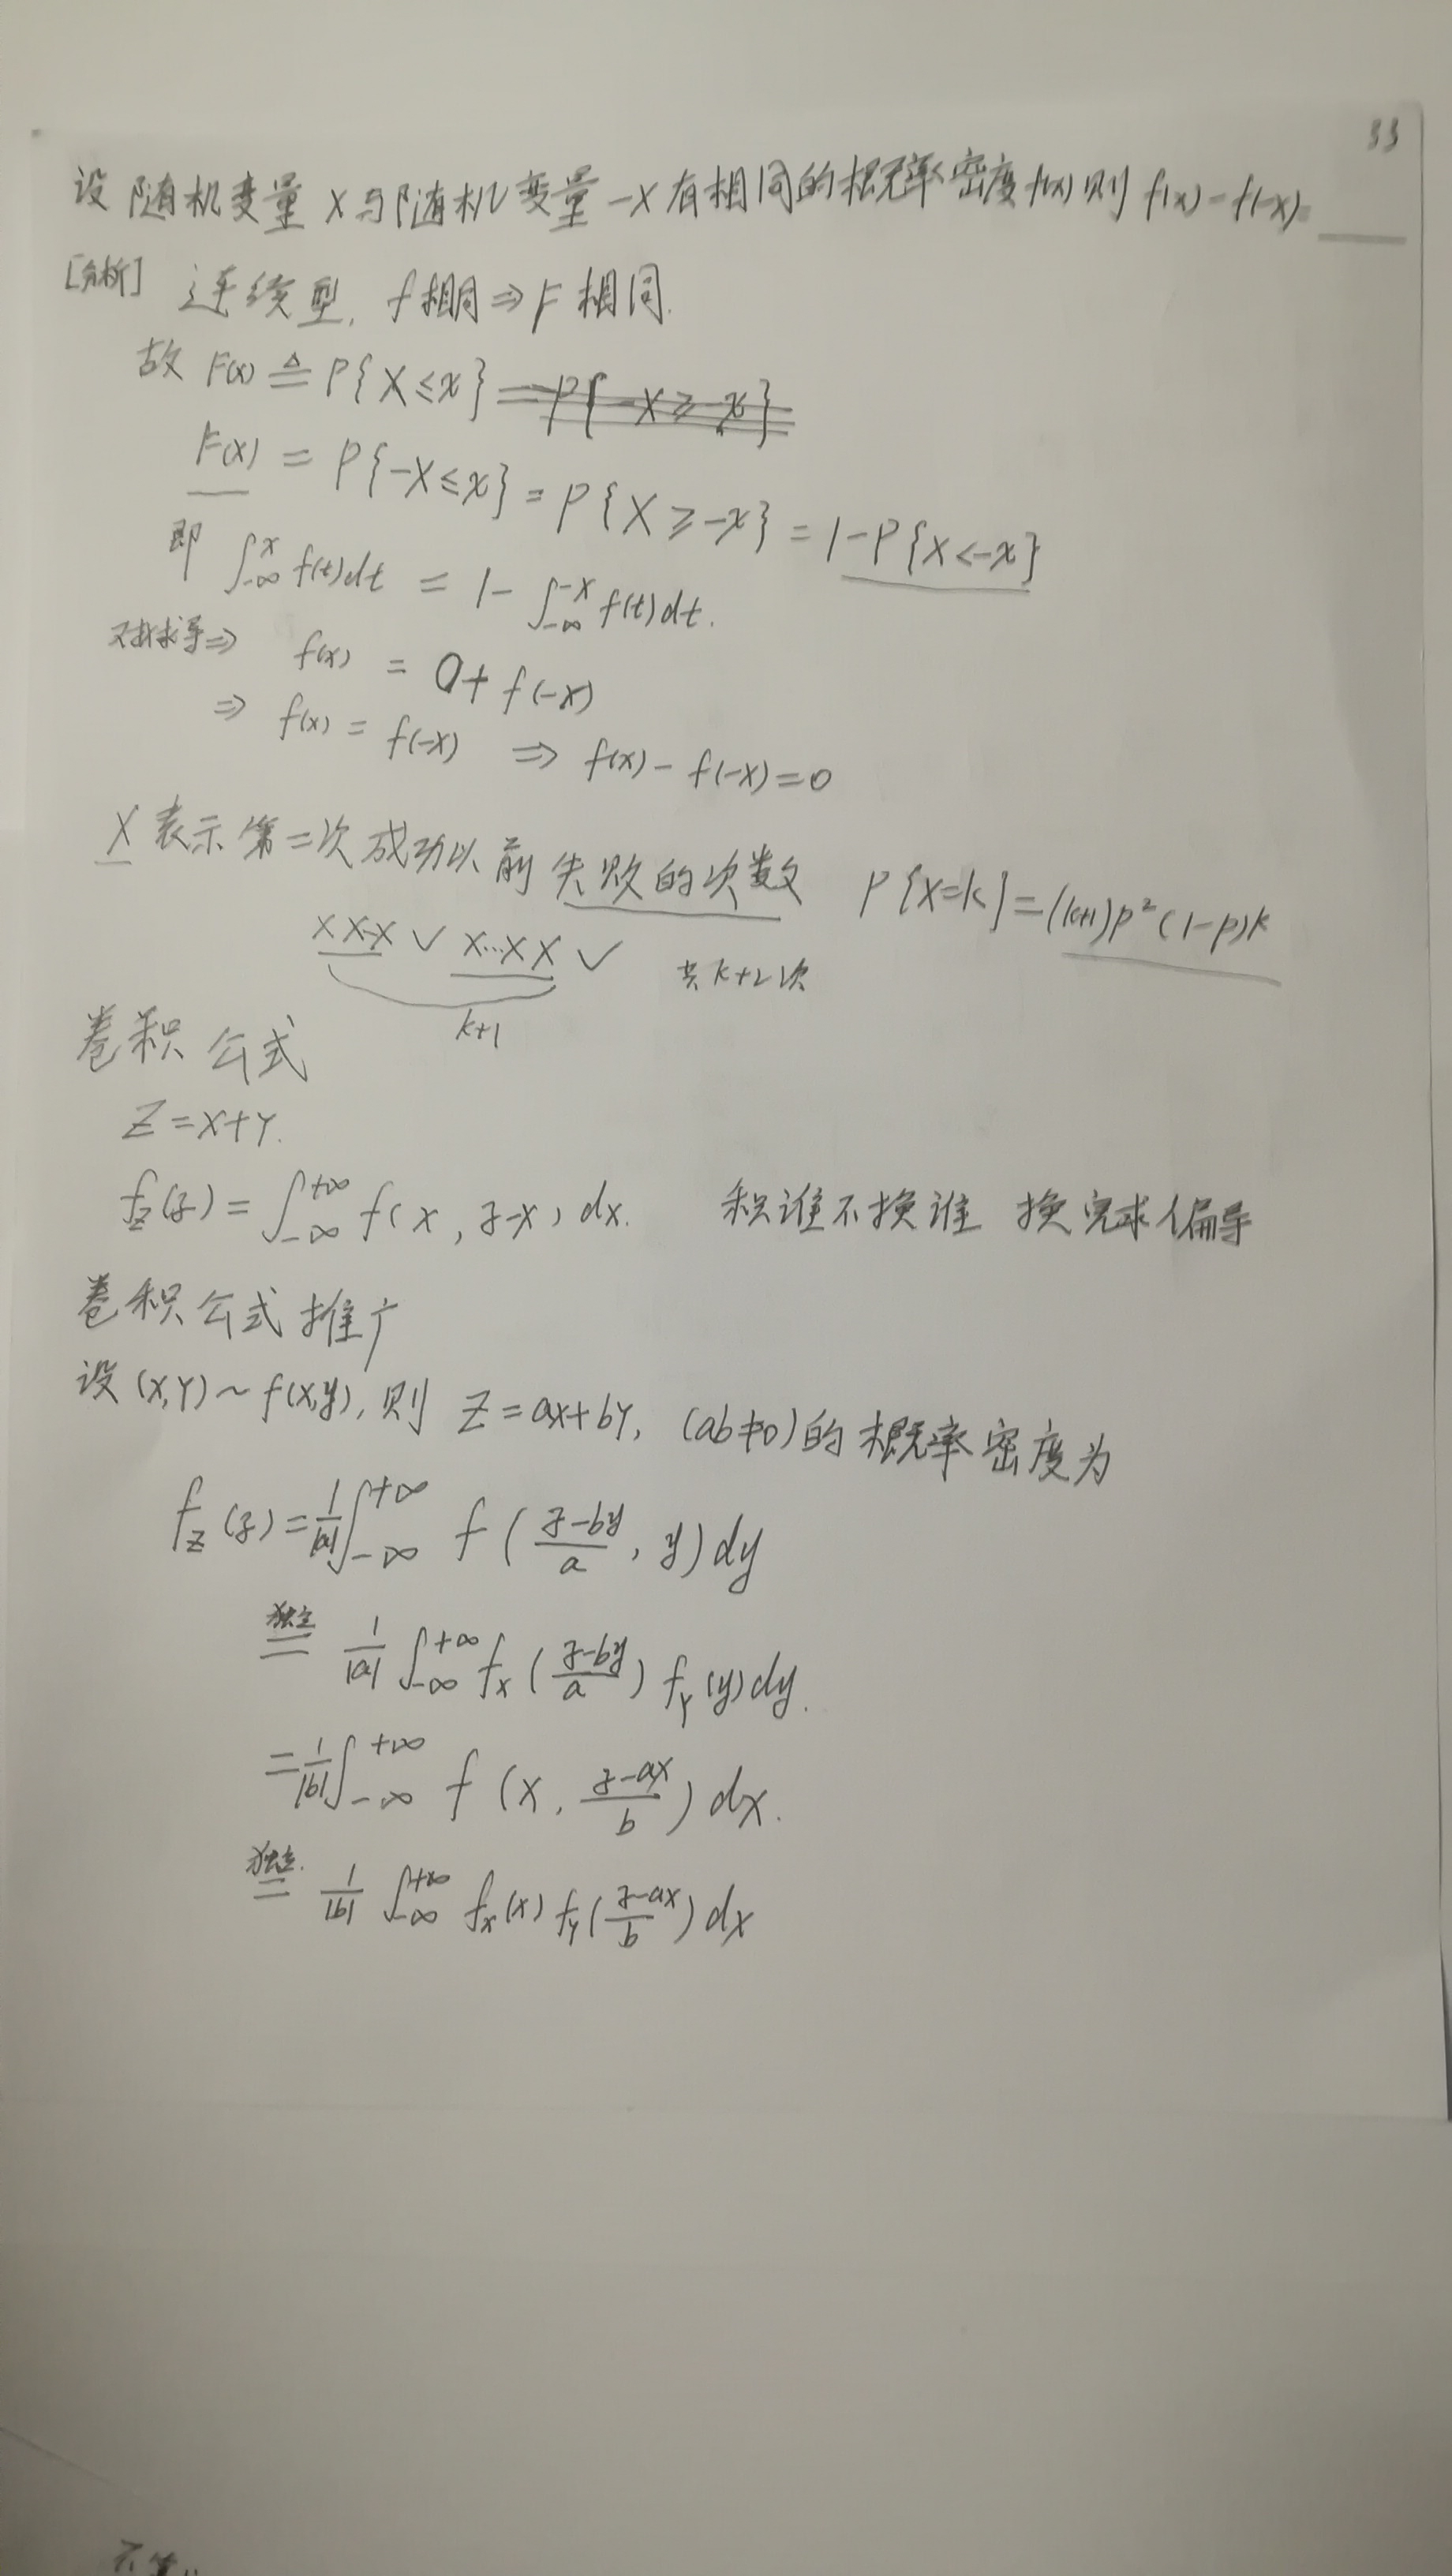 33
设随机变量 X 与随机变量 -X 有相同的概率密度 f(x) 则 f(x) - f(-x) = ____
[分析] 连续型, f相同 ⇒ F 相同.
故 F(x) ≜ P{X ≤ x} = P{-X ≥ -x}
F(x) = P{-X ≤ x} = P{X ≥ -x} = 1 - P{X < -x}
即 ∫_{-∞}^{x} f(t)dt = 1 - ∫_{-∞}^{-x} f(t)dt.
对x求导 ⇒ f(x) = 0 + f(-x)
⇒ f(x) = f(-x) ⇒ f(x) - f(-x) = 0
X 表示第二次成功以前失败的次数 P{X=k} = (k+1)p²(1-p)k
X X·X ✓ X...X X ✓ 共 k+2 次
k+1
卷积公式
Z = X+Y.
f_Z(z) = ∫_{-∞}^{+∞} f(x, z-x) dx. 积谁不换谁 换完求偏导
卷积公式推广
设 (X,Y) ~ f(x,y), 则 Z = aX+bY, (ab≠0) 的概率密度为
f_Z(z) = 1/|a| ∫_{-∞}^{+∞} f((z-by)/a, y) dy
独立
= 1/|a| ∫_{-∞}^{+∞} f_X((z-by)/a) f_Y(y) dy.
= 1/|b| ∫_{-∞}^{+∞} f(x, (z-ax)/b) dx.
独立.
= 1/|b| ∫_{-∞}^{+∞} f_X(x) f_Y((z-ax)/b) dx